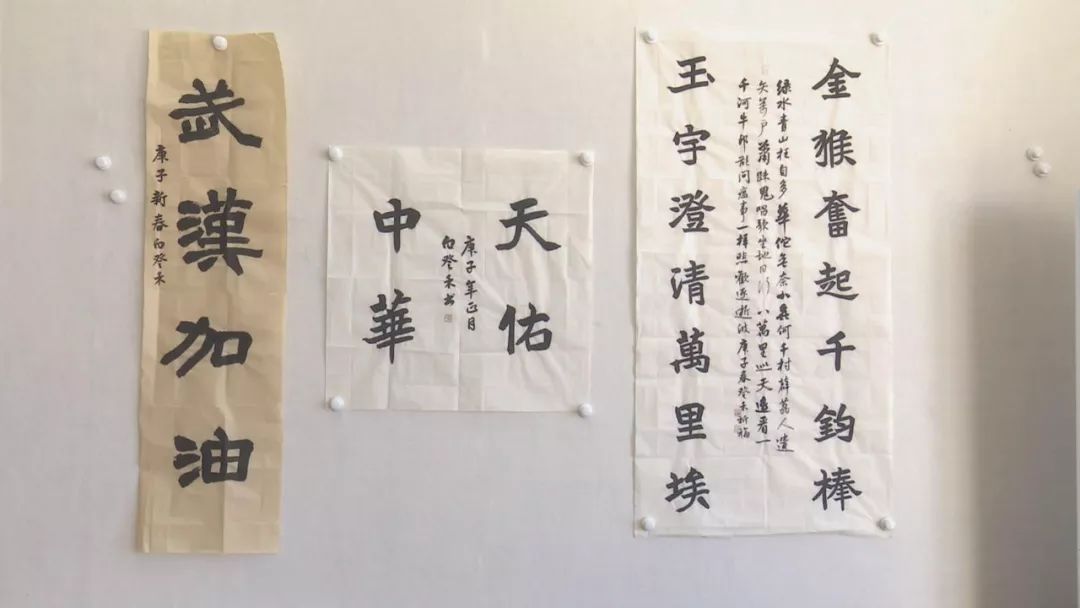 武漢加油
庚子新春白癸禾
天佑
中華
庚子年正月
白癸禾书
金猴奮起千鈞棒
绿水青山枉自多華佗無奈小蟲何千村薜荔人遺
矢萬户蕭疎鬼唱歌坐地日行八萬里巡天遥看一
千河牛郎欲问瘟事一样悲歡逐逝波庚子春癸禾祈福
玉宇澄清萬里埃